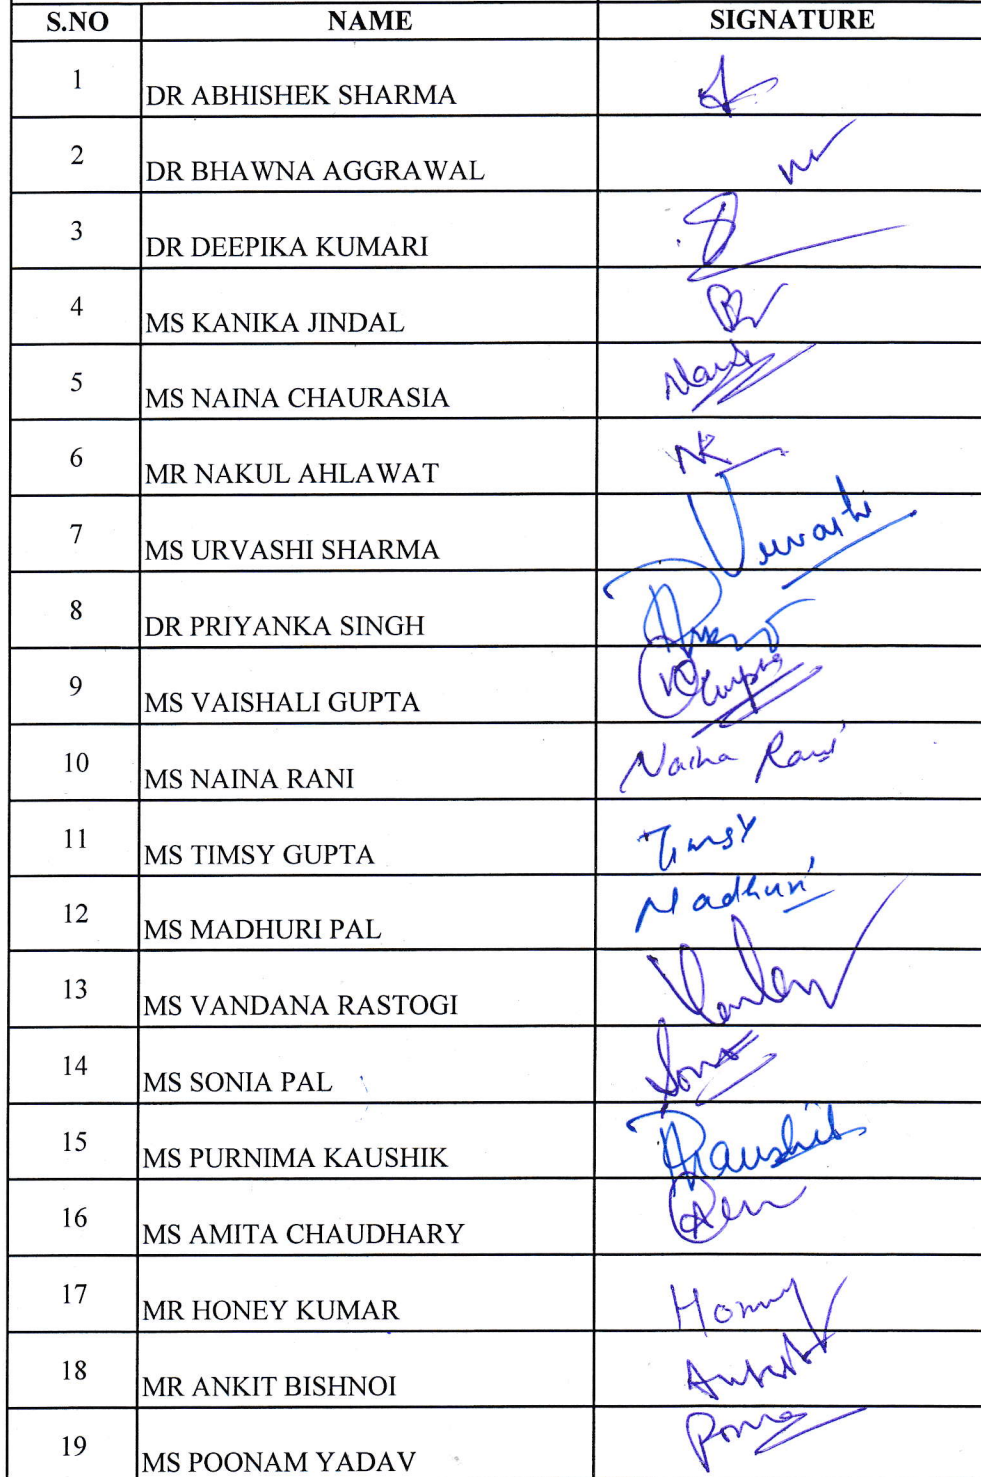 S.NO NAME SIGNATURE
1 DR ABHISHEK SHARMA
2 DR BHAWNA AGGRAWAL
3 DR DEEPIKA KUMARI
4 MS KANIKA JINDAL
5 MS NAINA CHAURASIA
6 MR NAKUL AHLAWAT NK
7 MS URVASHI SHARMA Urvashi
8 DR PRIYANKA SINGH
9 MS VAISHALI GUPTA
10 MS NAINA RANI Naina Rani
11 MS TIMSY GUPTA Timsy
12 MS MADHURI PAL Madhuri
13 MS VANDANA RASTOGI
14 MS SONIA PAL
15 MS PURNIMA KAUSHIK PKaushik
16 MS AMITA CHAUDHARY
17 MR HONEY KUMAR Honey
18 MR ANKIT BISHNOI Ankit
19 MS POONAM YADAV